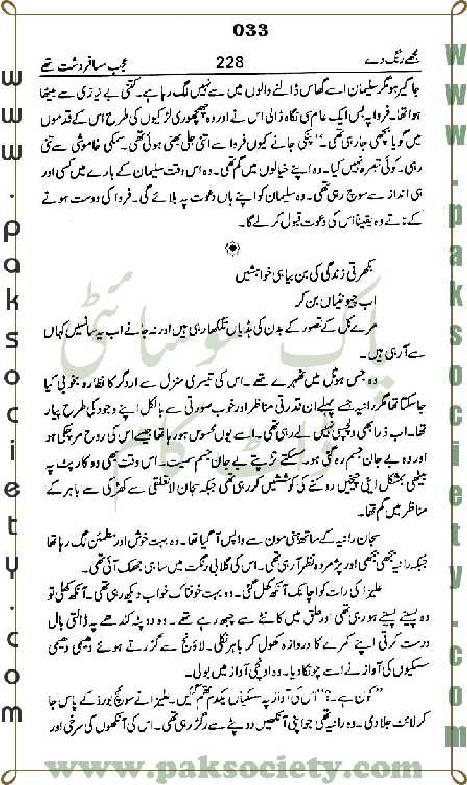 033
مجھے رنگ دے 228 عجب مسافر دشت تھے
جاگیر ہو مگر سلیمان اسے گھاس ڈالنے والوں میں سے نہیں لگ رہا ہے۔ کتنی بے نیازی سے بیٹھا
ہوا تھا۔ فروا پہ بس ایک عام سی نگاہ ڈالی اس نے اور وہ چھچھوری لڑکیوں کی طرح اس کے قدموں
میں گویا بچھی جا رہی تھی۔" پنکی جانے کیوں فروا سے اتنی جلی بھنی ہوئی تھی۔ سمکی خاموشی سے سنتی
رہی۔ کوئی تبصرہ نہیں کیا۔ وہ اپنے خیالوں میں گم تھی۔ وہ اس وقت سلیمان کے بارے میں کسی اور
ہی انداز سے سوچ رہی تھی۔ وہ سلیمان کو اپنے ہاں دعوت پہ بلائے گی۔ فروا کی دوست ہونے
کے ناتے وہ یقیناً اس کی دعوت قبول کر لے گا۔
بکھرتی زندگی کی بن بیاہی خواہشیں
اب چیونٹیاں بن کر
مرے کل کے تصور کے بدن کی ہڈیاں تک کھا رہی ہیں اور نہ جانے اب یہ سانسیں کہاں
سے آ رہی ہیں۔
وہ جس ہوٹل میں ٹھہرے تھے۔ اس کی تیسری منزل سے اردگرد کا نظارہ بخوبی کیا
جا سکتا تھا مگر رانیہ جسے پہلے ان قدرتی مناظر اور خوب صورتی سے بالکل اپنے وجود کی طرح پیار
تھا۔ اب ذرا بھی دلچسپی نہیں لے رہی تھی۔ اسے یوں محسوس ہو رہا تھا جیسے اس کی روح مر چکی ہو
اور وہ بے جان جسم رہ گئی ہو۔ سسکتے تڑپتے بے جان جسم سمیت۔ اس وقت بھی وہ کارپٹ پہ
بیٹھی بمشکل اپنی چیخیں روکنے کی کوششیں کر رہی تھی جبکہ سبحان لاتعلقی سے کھڑکی سے باہر کے
مناظر میں گم تھا۔
سبحان رانیہ کے ساتھ ہنی مون سے واپس آ گیا تھا۔ وہ بہت خوش اور مطمئن لگ رہا تھا
جبکہ رانیہ بجھی بجھی اور پژمردہ نظر آ رہی تھی۔ اس کی گلابی رنگت میں سیاہی جھلک آئی تھی۔
علیزا کی رات کو اچانک آنکھ کھل گئی۔ وہ بہت خوفناک خواب دیکھ رہی تھی۔ آنکھ کھلی تو
وہ پسینے پسینے ہو رہی تھی اور حلق میں کانٹے سے چبھ رہے تھے۔ وہ دوپٹہ کندھے پہ ڈالتی بال
درست کرتی اپنے کمرے کا دروازہ کھول کر باہر نکلی۔ لاؤنج سے گزرتے ہوئے دھیمی دھیمی
سسکیوں کی آواز نے اسے چونکا دیا۔ وہ اونچی آواز میں بولی۔
"کون ہے۔؟" اس کی آواز پہ سسکیاں یکدم تھم گئیں۔ علیزا نے سوئچ بورڈ کے پاس جا
کر لائٹ جلا دی۔ وہ رانیہ تھی جو اپنی آنکھیں دوپٹے سے رگڑ رہی تھی۔ اس کی آنکھوں کی سرخی اور
www.paksociety.com
www.paksociety.com
www.paksociety.com
پاک سوسائٹی
ڈاٹ کام